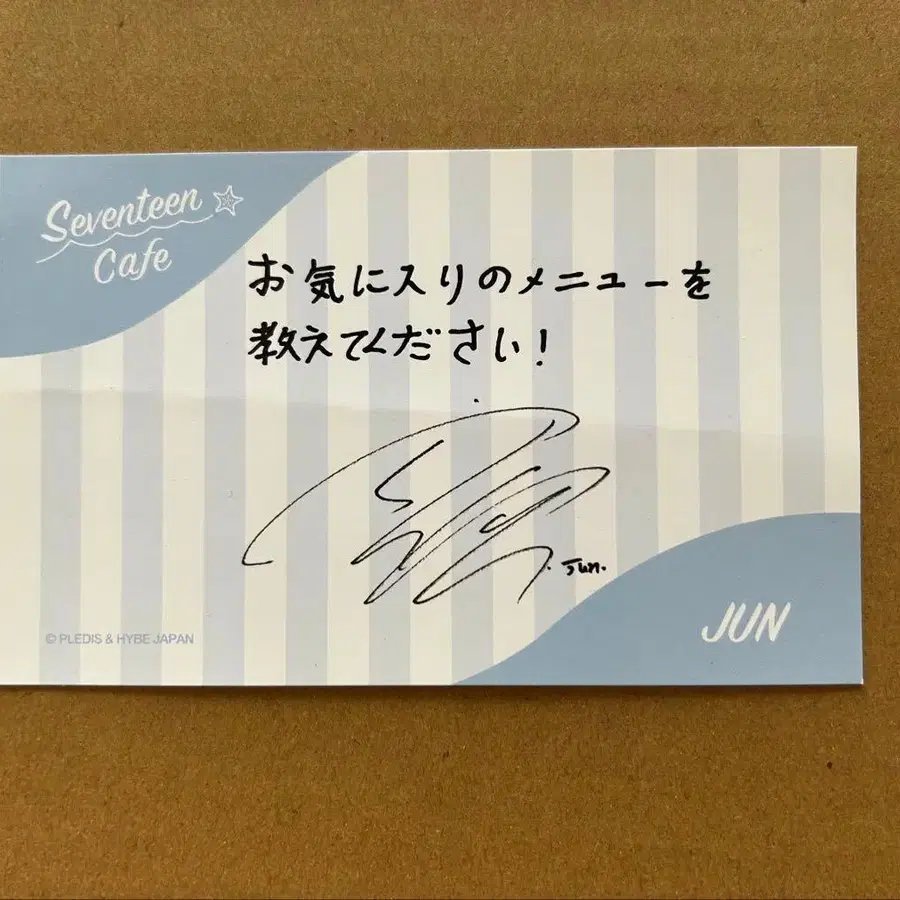 Seventeen
Cafe
お気に入りのメニューを
教えてください!
Jun.
JUN
© PLEDIS & HYBE JAPAN